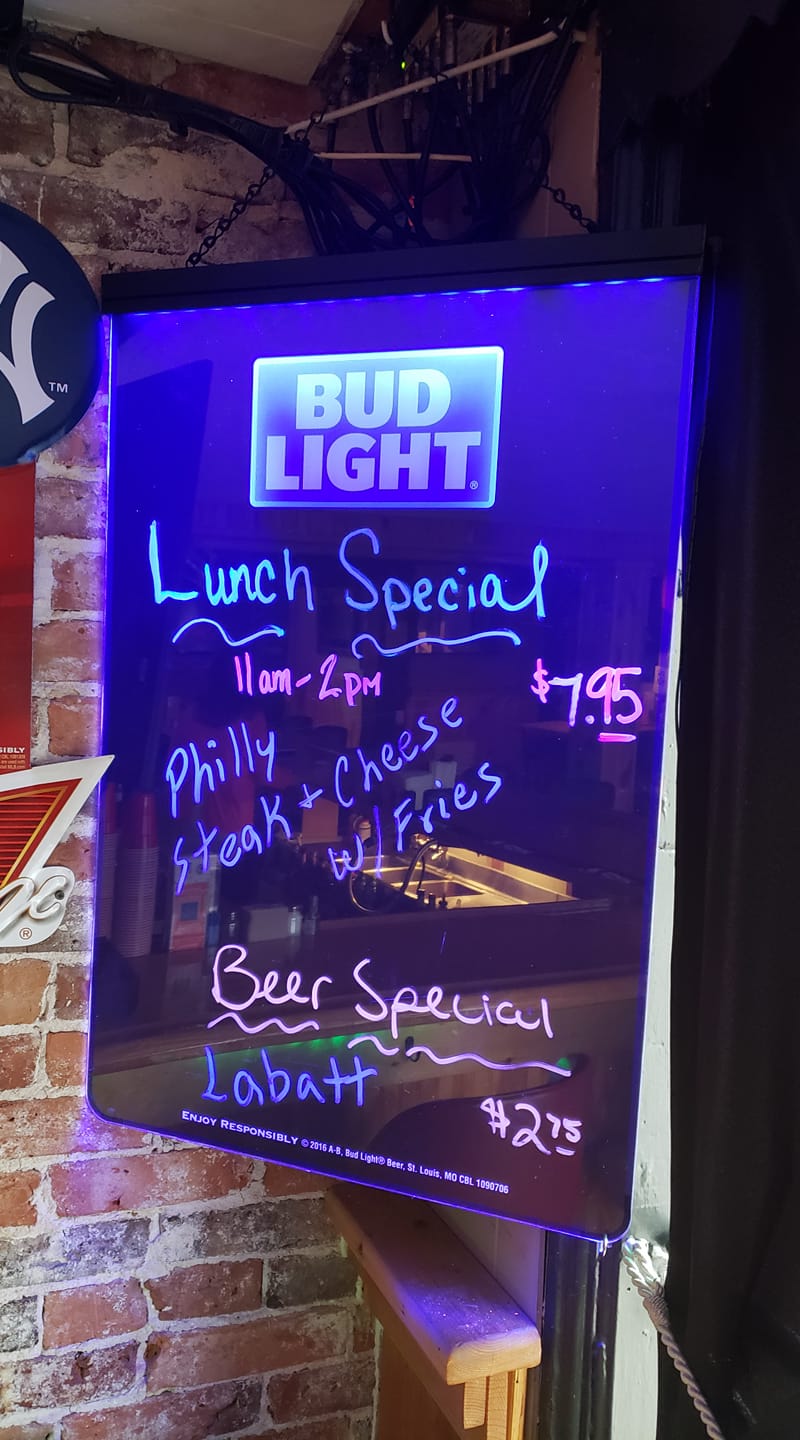 TM
BUD
LIGHT®
Lunch Special
11am-2pm
$7.95
Philly
Steak + Cheese
w/ Fries
Beer Special
Labatt
$2.75
ENJOY RESPONSIBLY © 2016 A-B, Bud Light® Beer, St. Louis, MO CBL 1090706
®